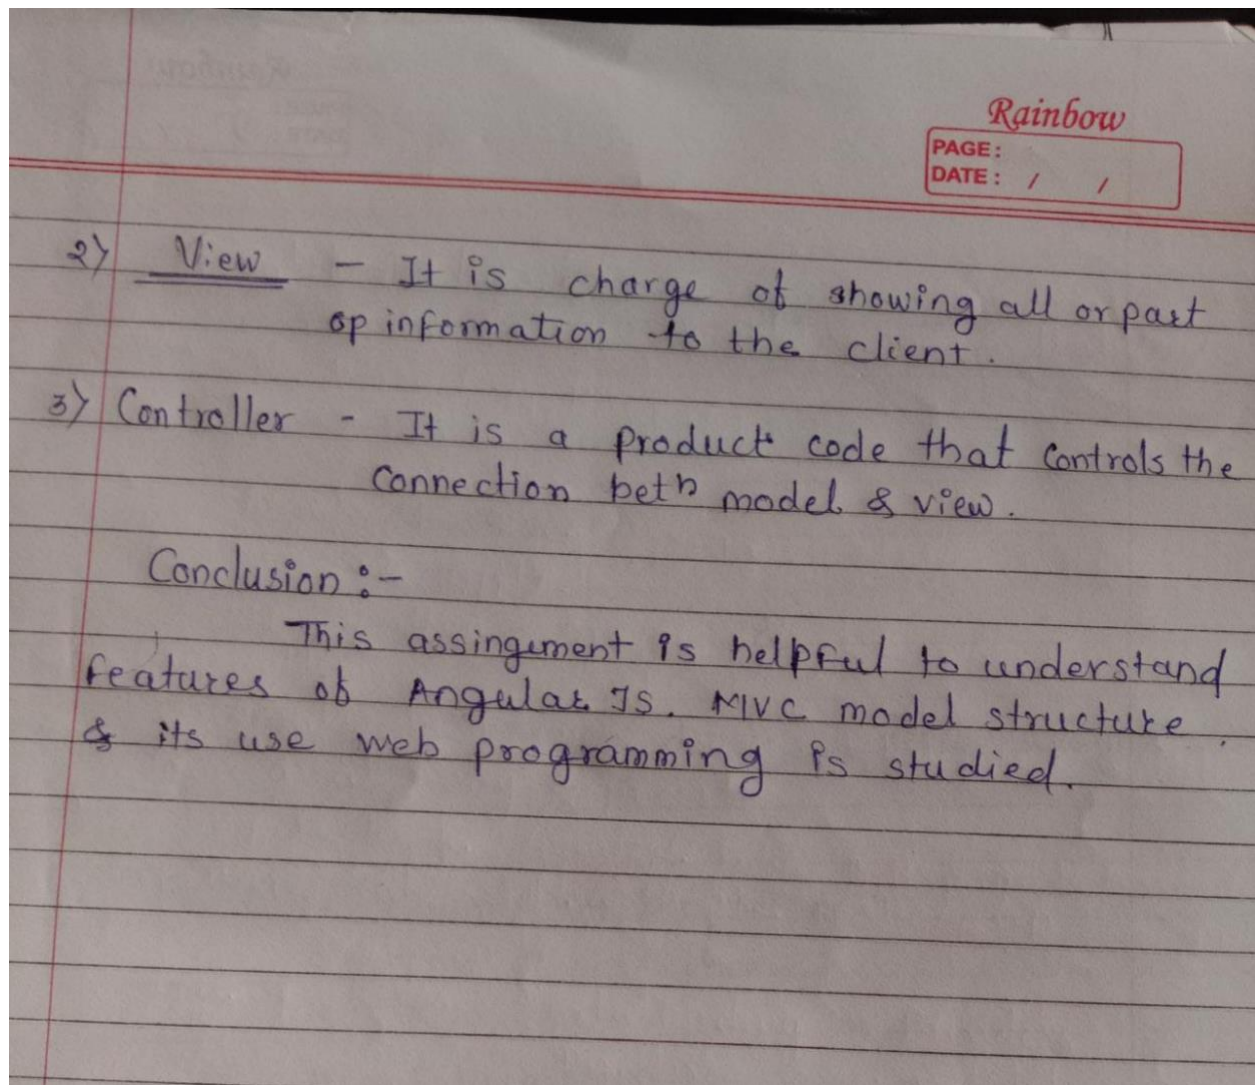 Rainbow
PAGE:
DATE: / /
2) View - It is charge of showing all or part
op information to the client.
3) Controller - It is a product code that controls the
Connection betn model & view.
Conclusion :-
This assingement is helpful to understand
features of Angular JS. MVC model structure
& its use web programming is studied.